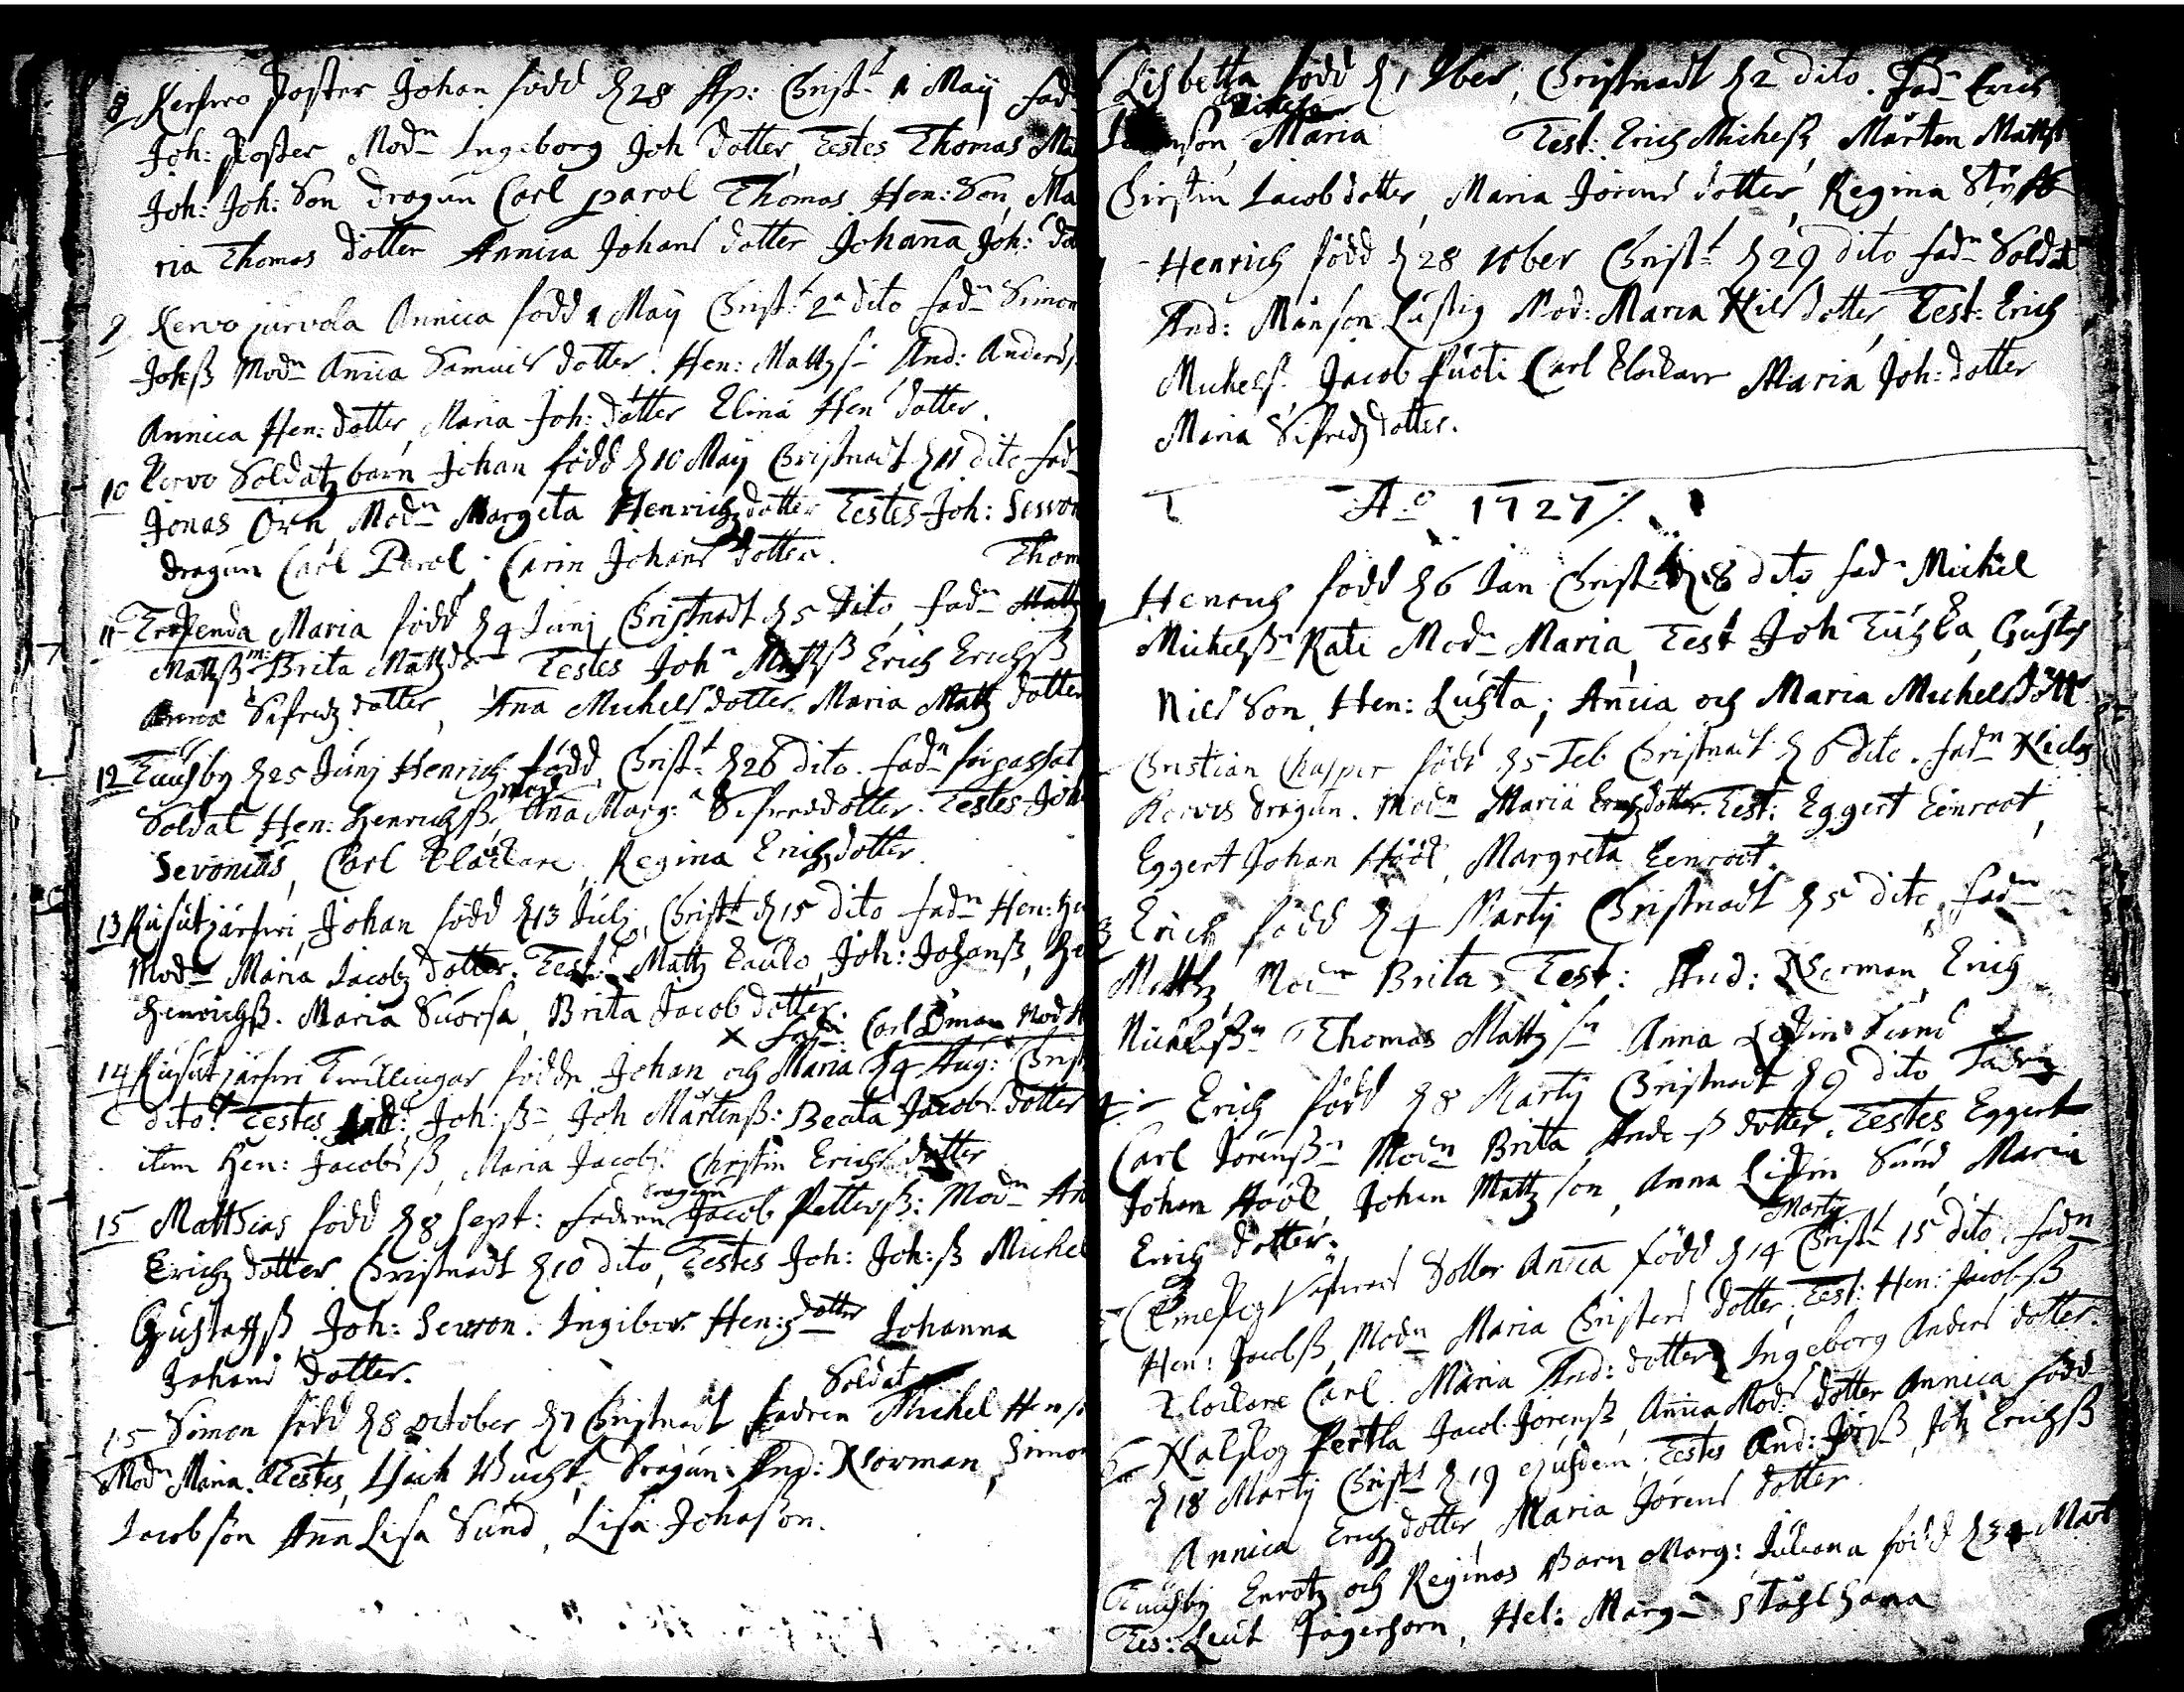 8 Kerfwo Poster Johan född d 28 Ap: Christ:t 1 Maij fad
Joh: Poster Modn Ingeborg Joh dotter, Testes Thomas Ma
Joh: Joh: Son dragun Carl parol Thomas Hen: Son, Ma
ria Thomas dotter Annica Johans dotter Johana Joh: dot
9 Kervo jurvola Annica född 1 Maij Christ:t 2 dito fadn Simon
Johß Modn Anica Samuels dotter. Hen: Mattzs And: Anders
Annica Hen: dotter, Maria Joh: dotter Elina Hen dotter.
10 Kervo Soldatz barn Johan född d 10 Maij Christnadt d 11 dito fad
Jonas Örn, Modn Margeta Henrichz dotter Testes Joh: Sevon
dragun Carl Parol, Carin Johans dotter. Thom
11 Maria född d 4 Junj Christnadt d 5 dito, fadn Mattz
Mattzß m: Brita Mattzd Testes John Mattzß Erich Erichß
Anna Sifredz dotter, Ana Michels dotter Maria Mattz dotter
12 Tuusby d 25 Junj Henrich född Christ:t d 26 dito. fadn förpassat
Soldat Hen: Henrichß, Mod Ana Marg: Sifredsdotter. Testes Joh
Sevonius, Carl Klåckare, Regina Erichsdotter.
13 Rusutjärfwi, Johan född d 13 Julj, Christt d 15 dito fadn Hen: He
Modn Maria Jacobz dotter. Test: Mattz Paulo, Joh: Johanß, He
Henrichß. Maria Suorsa, Brita Jacob dotter.
x fadn: Carl Öman Mod A
14 Rusutjärfwi Twillingar födde Johan och Maria d 4 Aug: Christ
dito. Testes Joh: ß Joh Mårtenß: Beata Jacobs dotter
item Hen: Jacobsß, Maria Jacobs. Christin Erichs dotter
15 Matthias född d 8 Sept: fadren dragun Jacob Petterß: Modn An
Erichz dotter Christnadt d 10 dito, Testes Joh: Joh: ß Michel
Gustaffß, Joh: Sevon. Ingibor Hen: dotter Johanna
Johans dotter.
15 Simon född d 8 october d 9 Christnadt fadren Soldat Michel Hens
Modn Maria. Testes, Isach Wucht, Dragun And: Norman, Simon
Jacobson Ana Lisa Sund, Lisa Johaßon.
Lisbetta född d 1 9ber, Christnadt d 2 dito. Fadn Erich
Maria Test: Erich Michelß, Mårten Mattzs
Christin Jacobdotter, Maria Jörens dotter, Regina
Henrich född d 28 10ber Christ:t d 29 dito fadn Soldat
And: Månson Lustig Mod: Maria Nilsdotter, Test: Erich
Michelß. Jacob Puoti Carl Klockare Maria Joh: dotter
Maria Sifredzdotter.
Ao 1727/.
Henrich född d 6 Jan Christ:t d 8 dito fadn Michel
Michelßn Rati Modn Maria, Test Joh Tuska, Gustaf
Nils Son, Hen: Lusta, Anica och Maria Michelsdött
Christian Chasper född d 5 Feb Christnadt d 6 dito. fadn Niclas
dragun. Modn Maria Erichzdotter. Test: Eggert Eenroot,
Eggert Johan Höök, Margreta Eenroot.
3 Erich född d 4 Martij Christnadt d 5 dito, fadn
Mattz, Modn Brita, Test: And: Norman, Erich
Michelßn Thomas Mattz sn Anna Lisin Sund
4 Erich född d 8 Martij Christnadt d 9 dito Fadren
Carl Jörenßn Modn Brita Andersß dotter. Testes Eggert
Johan Höök, Johan Mattz son, Anna Lisin Sund, Maria
Erich dotter.
5 dotter Anica född d 14 Martij Christ:t 15 dito, fadn
Hen: Jacobß, Modn Maria Christers dotter, Test: Hen: Jacobß
Klockare Carl. Maria And: dotter, Ingeborg Anders dotter.
6 Nalskog Pertla Jacob Jörenß, Anica Mods dotter Annica född
d 18 Martij Christ:t d 19 ejusdem. Testes And: Jörß, Joh Erichß
Annica Erichz dotter, Maria Jörens dotter.
Tuusby Enrotz och Reginas Barn Marg: Juliana född d 31 Mart
Tes: Leut Jägerhorn, Hel: Marg: Stålhana